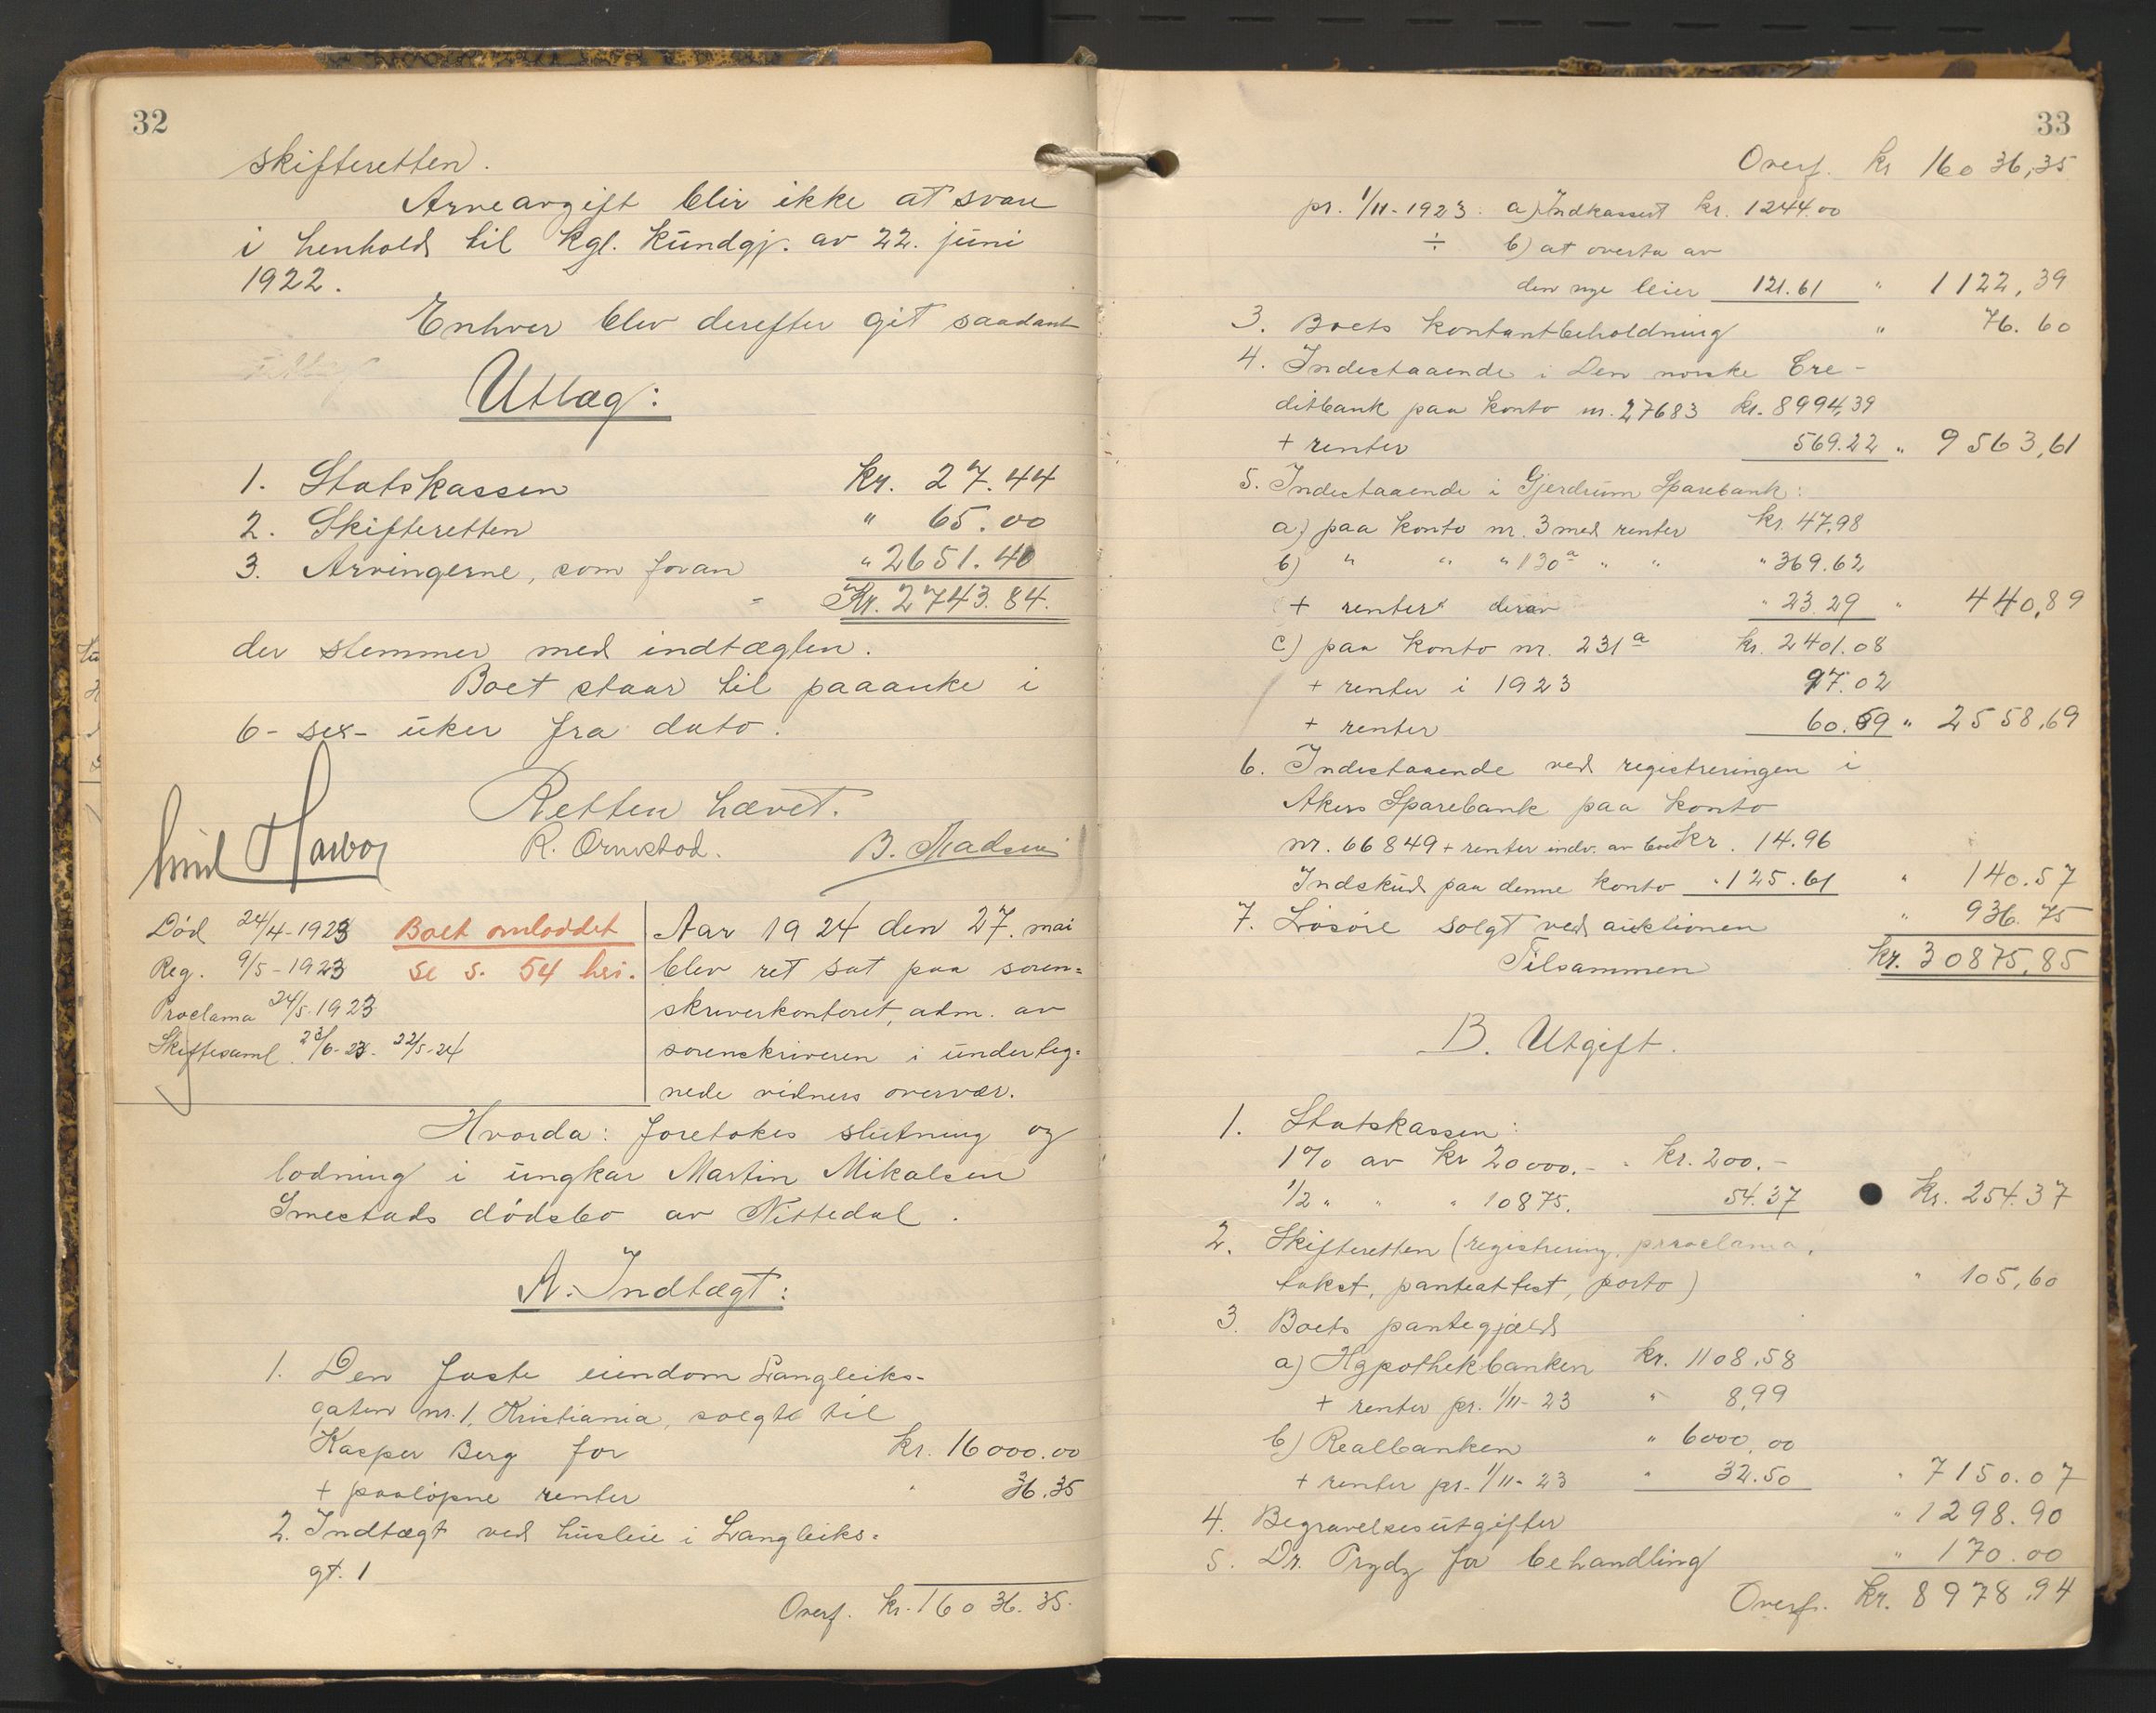 32
skifteretten.
Arveavgift blir ikke at svare
i henhold til kgl. kundgj. av 22. juni
1922.
Enhver blev derefter git saadant
Utlæg:
1. Statskassen kr. 27.44
2. Skifteretten " 65.00
3. Arvingerne, som foran " 2651.40
Kr. 2743.84.
der stemmer med indtægten.
Boet staar til paaanke i
6 - sex - uker fra dato.
Retten hævet.
R. Ornstad. B. Madsen
Emil
Død 24/4-1923
Reg. 9/5-1923
Proclama 24/5-1923
Skiftesaml. 23/6-23. 22/5-24
Boet omloddet
se s. 54 her.
Aar 1924 den 27. mai
blev ret sat paa soren=
skriverkontoret, adm. av
sorenskriveren i underteg=
nede vidners overvær.
Hvorda: foretokes slutning og
lodning i ungkar Martin Mikalsen
Smestads dødsbo av Nittedal.
A. Indtægt:
1. Den faste eiendom Langleiks-
gaten nr. 1, Kristiania, solgte til
Kasper Berg for kr. 16000.00
+ paaløpne renter " 36.35
2. Indtægt ved husleie i Langleiks=
gt. 1
Overf. kr. 16036.35.
33
Overf. kr 16036,35
pr. 1/11-1923: a) Indkassert kr. 1244.00
÷ b) at overta av
den nye leier 121.61 " 1122,39
3. Boets kontantbeholdning " 76.60
4. Indestaaende i Den norske Cre-
ditbank paa konto nr. 27683 kr. 8994,39
+ renter 569.22 " 9563,61
5. Indestaaende i Gjerdrum Sparebank:
a) paa konto nr. 3 med renter kr. 47,98
b) " " " 130a " " " 369.62
+ renter derav " 23.29 " 440,89
c) paa konto nr. 231a kr. 2401.08
+ renter i 1923 97.02
+ renter 60.59 " 2558,69
6. Indestaaende ved registreringen i
Akers Sparebank paa konto
nr. 66849 + renter indv. av boet kr. 14.96
Indskud paa denne konto " 125.61 " 140.57
7. Løsøre solgt ved auktionen " 936.75
Tilsammen kr. 30875,85
B. Utgift.
1. Statskassen:
1% av kr 20000.- " kr. 200.-
1/2 " " " 10875. 54.37 kr. 254.37
2. Skifteretten (registrering, proclama,
takst, panteattest, porto) " 105,60
3. Boets pantegjæld
a) Hypothekbanken kr. 1108,58
+ renter pr. 1/11-23 " 8,99
b) Realbanken " 6000,00
+ renter pr. 1/11-23 " 32.50 " 7150.07
4. Begravelsesutgifter " 1298.90
5. Dr. Prydz for behandling " 170.00
Overf. kr. 8978,94